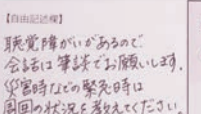 【自由記述欄】
聴覚障がいがあるので
会話は筆談でお願いします。
災害時などの緊急時は
周囲の状況を教えてください。